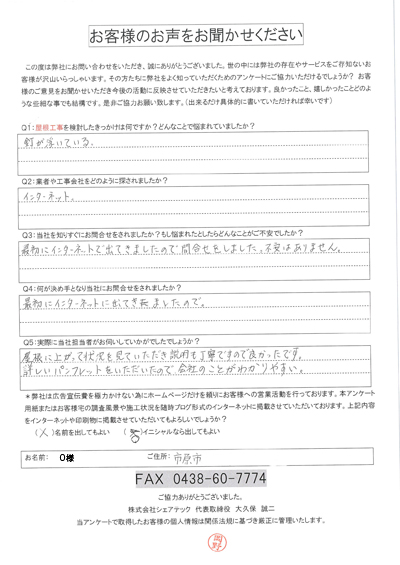 お客様のお声をお聞かせください
この度は弊社にお問い合わせをいただき、誠にありがとうございました。世の中には弊社の存在やサービスをご存知ないお
客様が沢山いらっしゃいます。その方たちに弊社をよく知っていただくためのアンケートにご協力いただけるでしょうか？ お客
様のご意見をお聞かせいただき今後の活動に反映させていただきたいと考えております。良かったこと、嬉しかったことどのよ
うな些細な事でも結構です。是非ご協力お願い致します。（出来るだけ具体的に書いていただければ幸いです）
Q1：屋根工事を検討したきっかけは何ですか？どんなことで悩まれていましたか？
釘が浮いている。
Q2：業者や工事会社をどのように探されましたか？
インターネット。
Q3：当社を知りすぐにお問合せをされましたか？もし悩まれたとしたらどんなことがご不安でしたか？
最初にインターネットで出てきましたので問合せをしました。不安はありません。
Q4：何が決め手となり当社にお問合せをされましたか？
最初にインターネットに出てきましたので。
Q5：実際に当社担当者がお伺いしていかがでしたでしょうか？
屋根に上がって状況を見ていただき説明も丁寧ですので良かったです。
詳しいパンフレットをいただいたので会社のことがわかりやすい。
＊弊社は広告宣伝費を極力かけない為にホームページだけを頼りにお客様への営業活動を行っております。本アンケート
用紙またはお客様宅の調査風景や施工状況を随時ブログ形式のインターネットに掲載させていただいております。上記内容
をインターネットや印刷物に掲載させていただいてもよろしいでしょうか？
（ 　）名前を出してもよい　（ 　）イニシャルなら出してもよい
お名前： O様 ご住所： 市原市
FAX 0438-60-7774
ご協力ありがとうございました。
株式会社シェアテック 代表取締役 大久保 誠二
当アンケートで取得したお客様の個人情報は関係法規に基づき厳正に管理いたします。